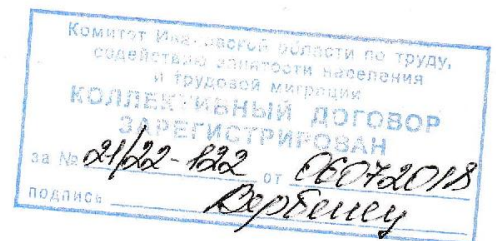 Комитет Ивановской области по труду,
содействию занятости населения
и трудовой миграции
КОЛЛЕКТИВНЫЙ ДОГОВОР
ЗАРЕГИСТРИРОВАН
за № 21/22-122 от 06072018
подпись